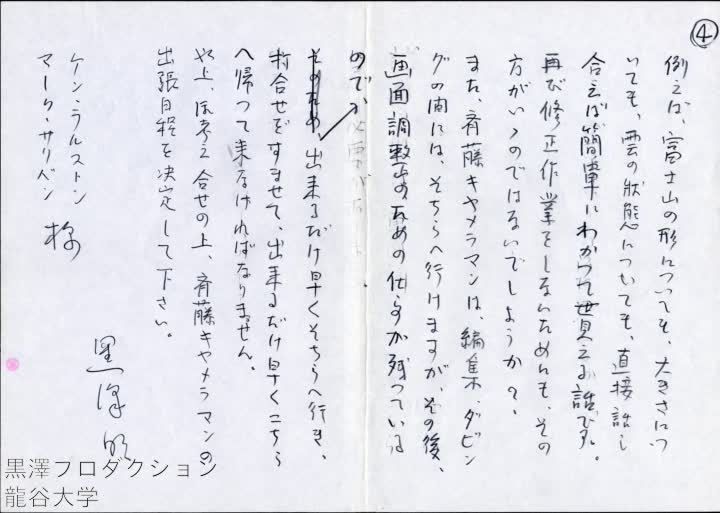 ④
例えば、富士山の形についても、大きさにつ
いても、雲の状態についても、直接話し
合えば簡単にわかつて貰える話です。
再び修正作業をしないためにも、その
方がいゝのではないでしようか？、
また、斉藤キャメラマンは、編集、ダビン
グの間には、そちらへ行けますが、その後、
画面調整のための仕事が残っている
ので、
そのため、出来るだけ早くそちらへ行き、
打合せをすませて、出来るだけ早くこちら
へ帰つて来なければなりません。
以上、お考え合せの上、斉藤キャメラマンの
出張日程を決定して下さい。
ケン・ラルストン
マーク・サリバン 様
黒澤明
黒澤プロダクション
龍谷大学